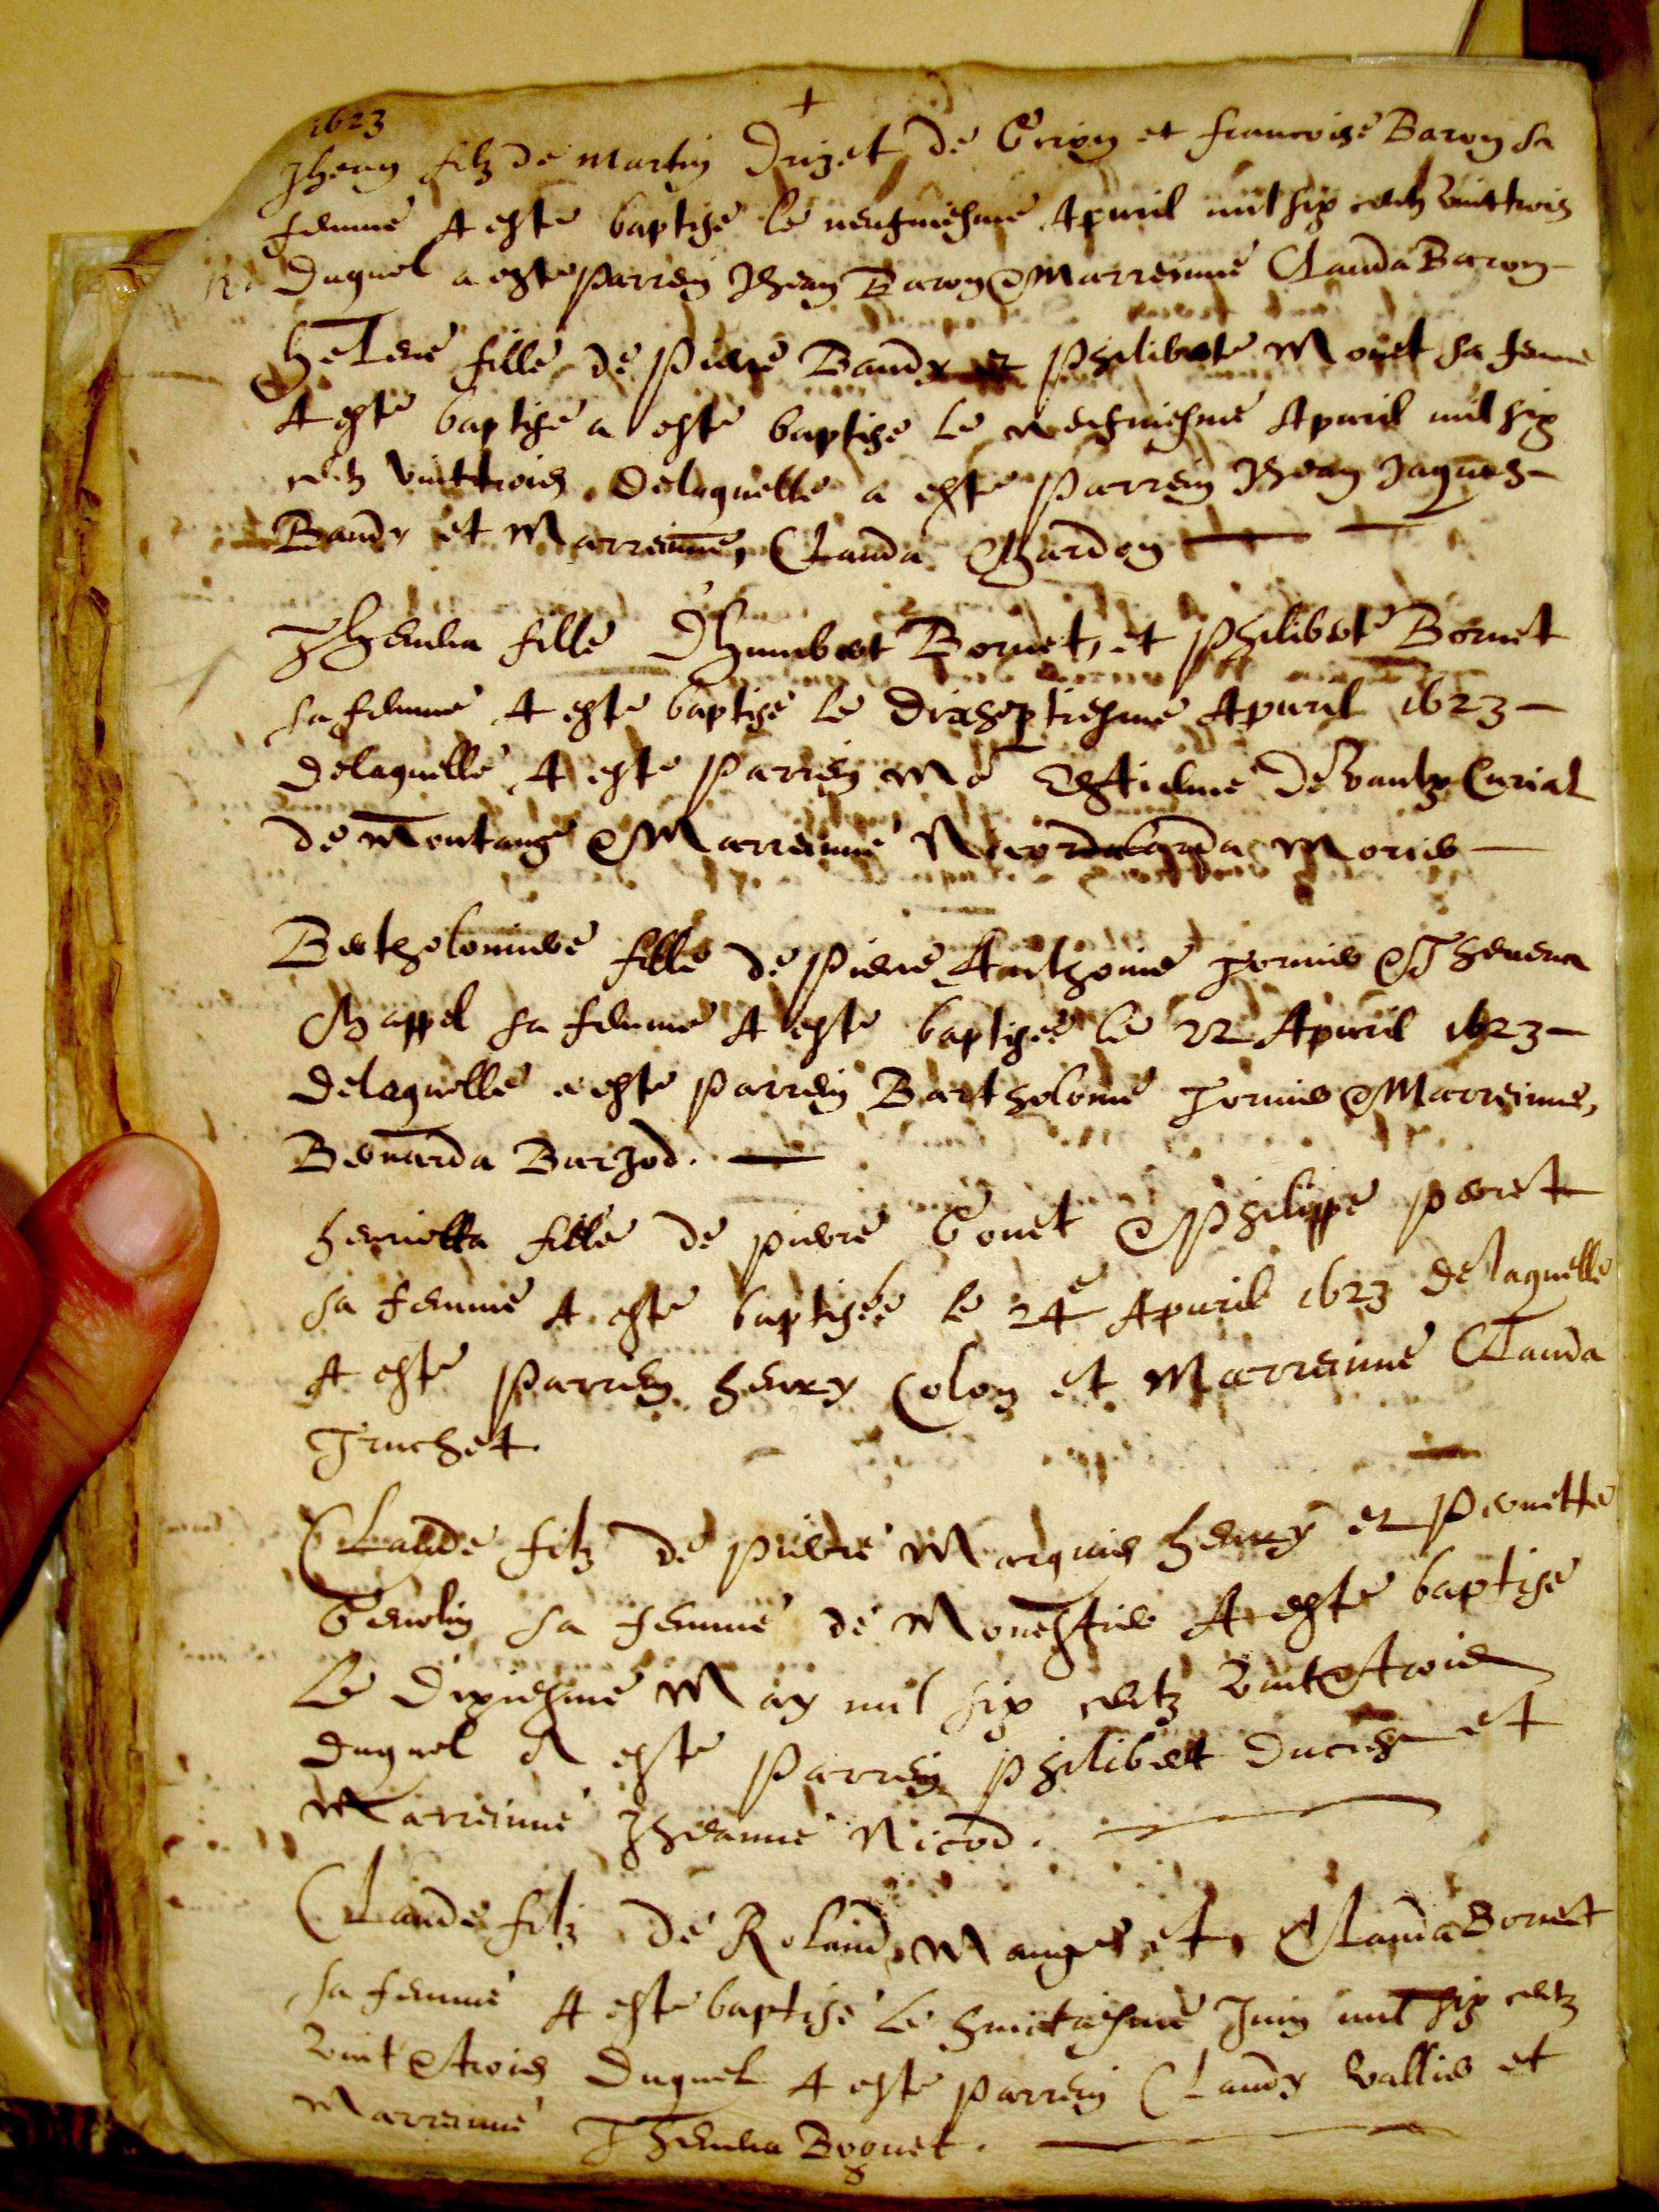 +
1623
Jhean filz de Martin Drizet de Crion et francoise Baron sa
femme A este baptise le neufuiesme Apuril mil six centz vint trois
Duquel a este parrein Jhean Baron & Marreinne Clauda Baron
Helene fille de pierre Baudy et philiberte Monet sa femme
A este baptise a este baptise le neufuiesme Apuril mil six
centz vint trois Delaquelle a este parrein Jhean Jaques
Baudy et Marreinne Clauda Chardon
fille Dhumbert Bornet, et philiberte Bornet
sa femme A este baptise le dixseptiesme Apuril 1623
Delaquelle A este parrein Me Estienne Curial
de Montange & Marreinne
Bertholomiere fille de pierre Anthoine & Thevena
Chappel sa femme A este baptisee le 22 Apuril 1623
Delaquelle a este parrein Bartholome & Marreinne
Bernarda Barjod.
Henrietta fille de pierre & philippe perret
sa femme A este baptisee le 24e Apuril 1623 delaquelle
A este parrein Henry Colon et Marreinne Clauda
Truchet
Claude filz de pierre Marquis Henry et pernette
sa femme de Monestier A este baptise
Le Dixiesme May mil six centz vint & trois
Duquel A este parrein philibert Ducrest et
Marreinne Jheanne Nicod.
Claude filz de Roland Manger et Clauda Bornet
sa femme A este baptise le huictiesme Juin mil six centz
vint & trois Duquel A este parrein Claudy Vallier et
Marreinne Thevena Boguet.